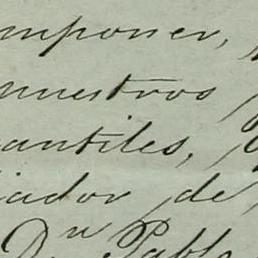 mponer,
nuestros
cantiles,
iador de
Dn Pablo